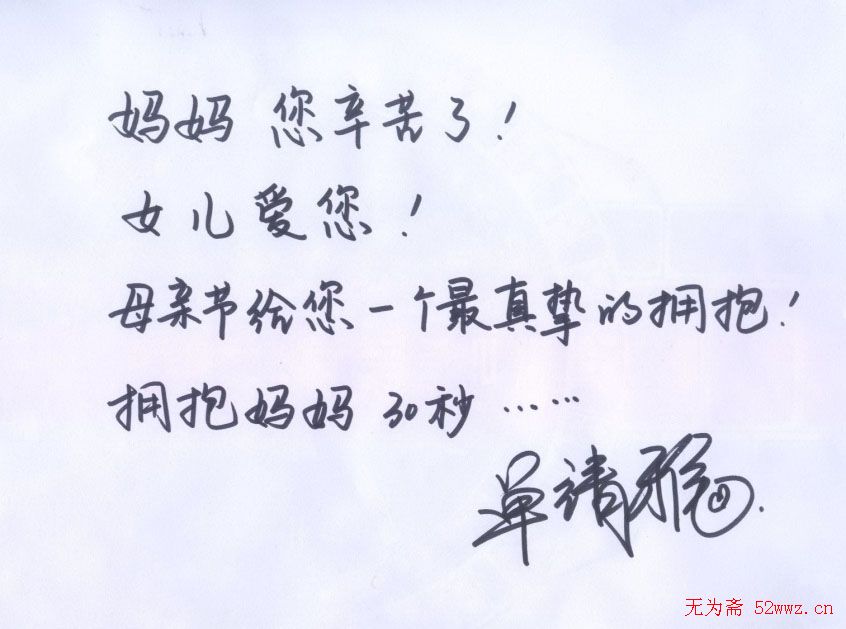 妈妈 您辛苦了!
女儿爱您!
母亲节给您一个最真挚的拥抱!
拥抱妈妈 30秒 ……
单靖雅
无为斋 52wwz.cn